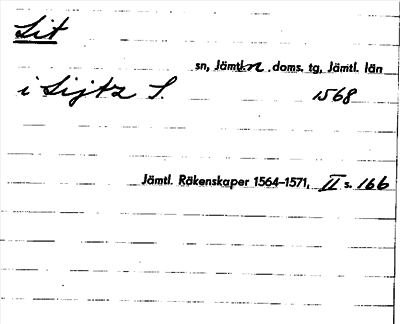 Lit
sn, Jämtl. n. doms. tg, Jämtl. län
i Lijtz S. 1568
Jämtl. Räkenskaper 1564–1571, II s. 166